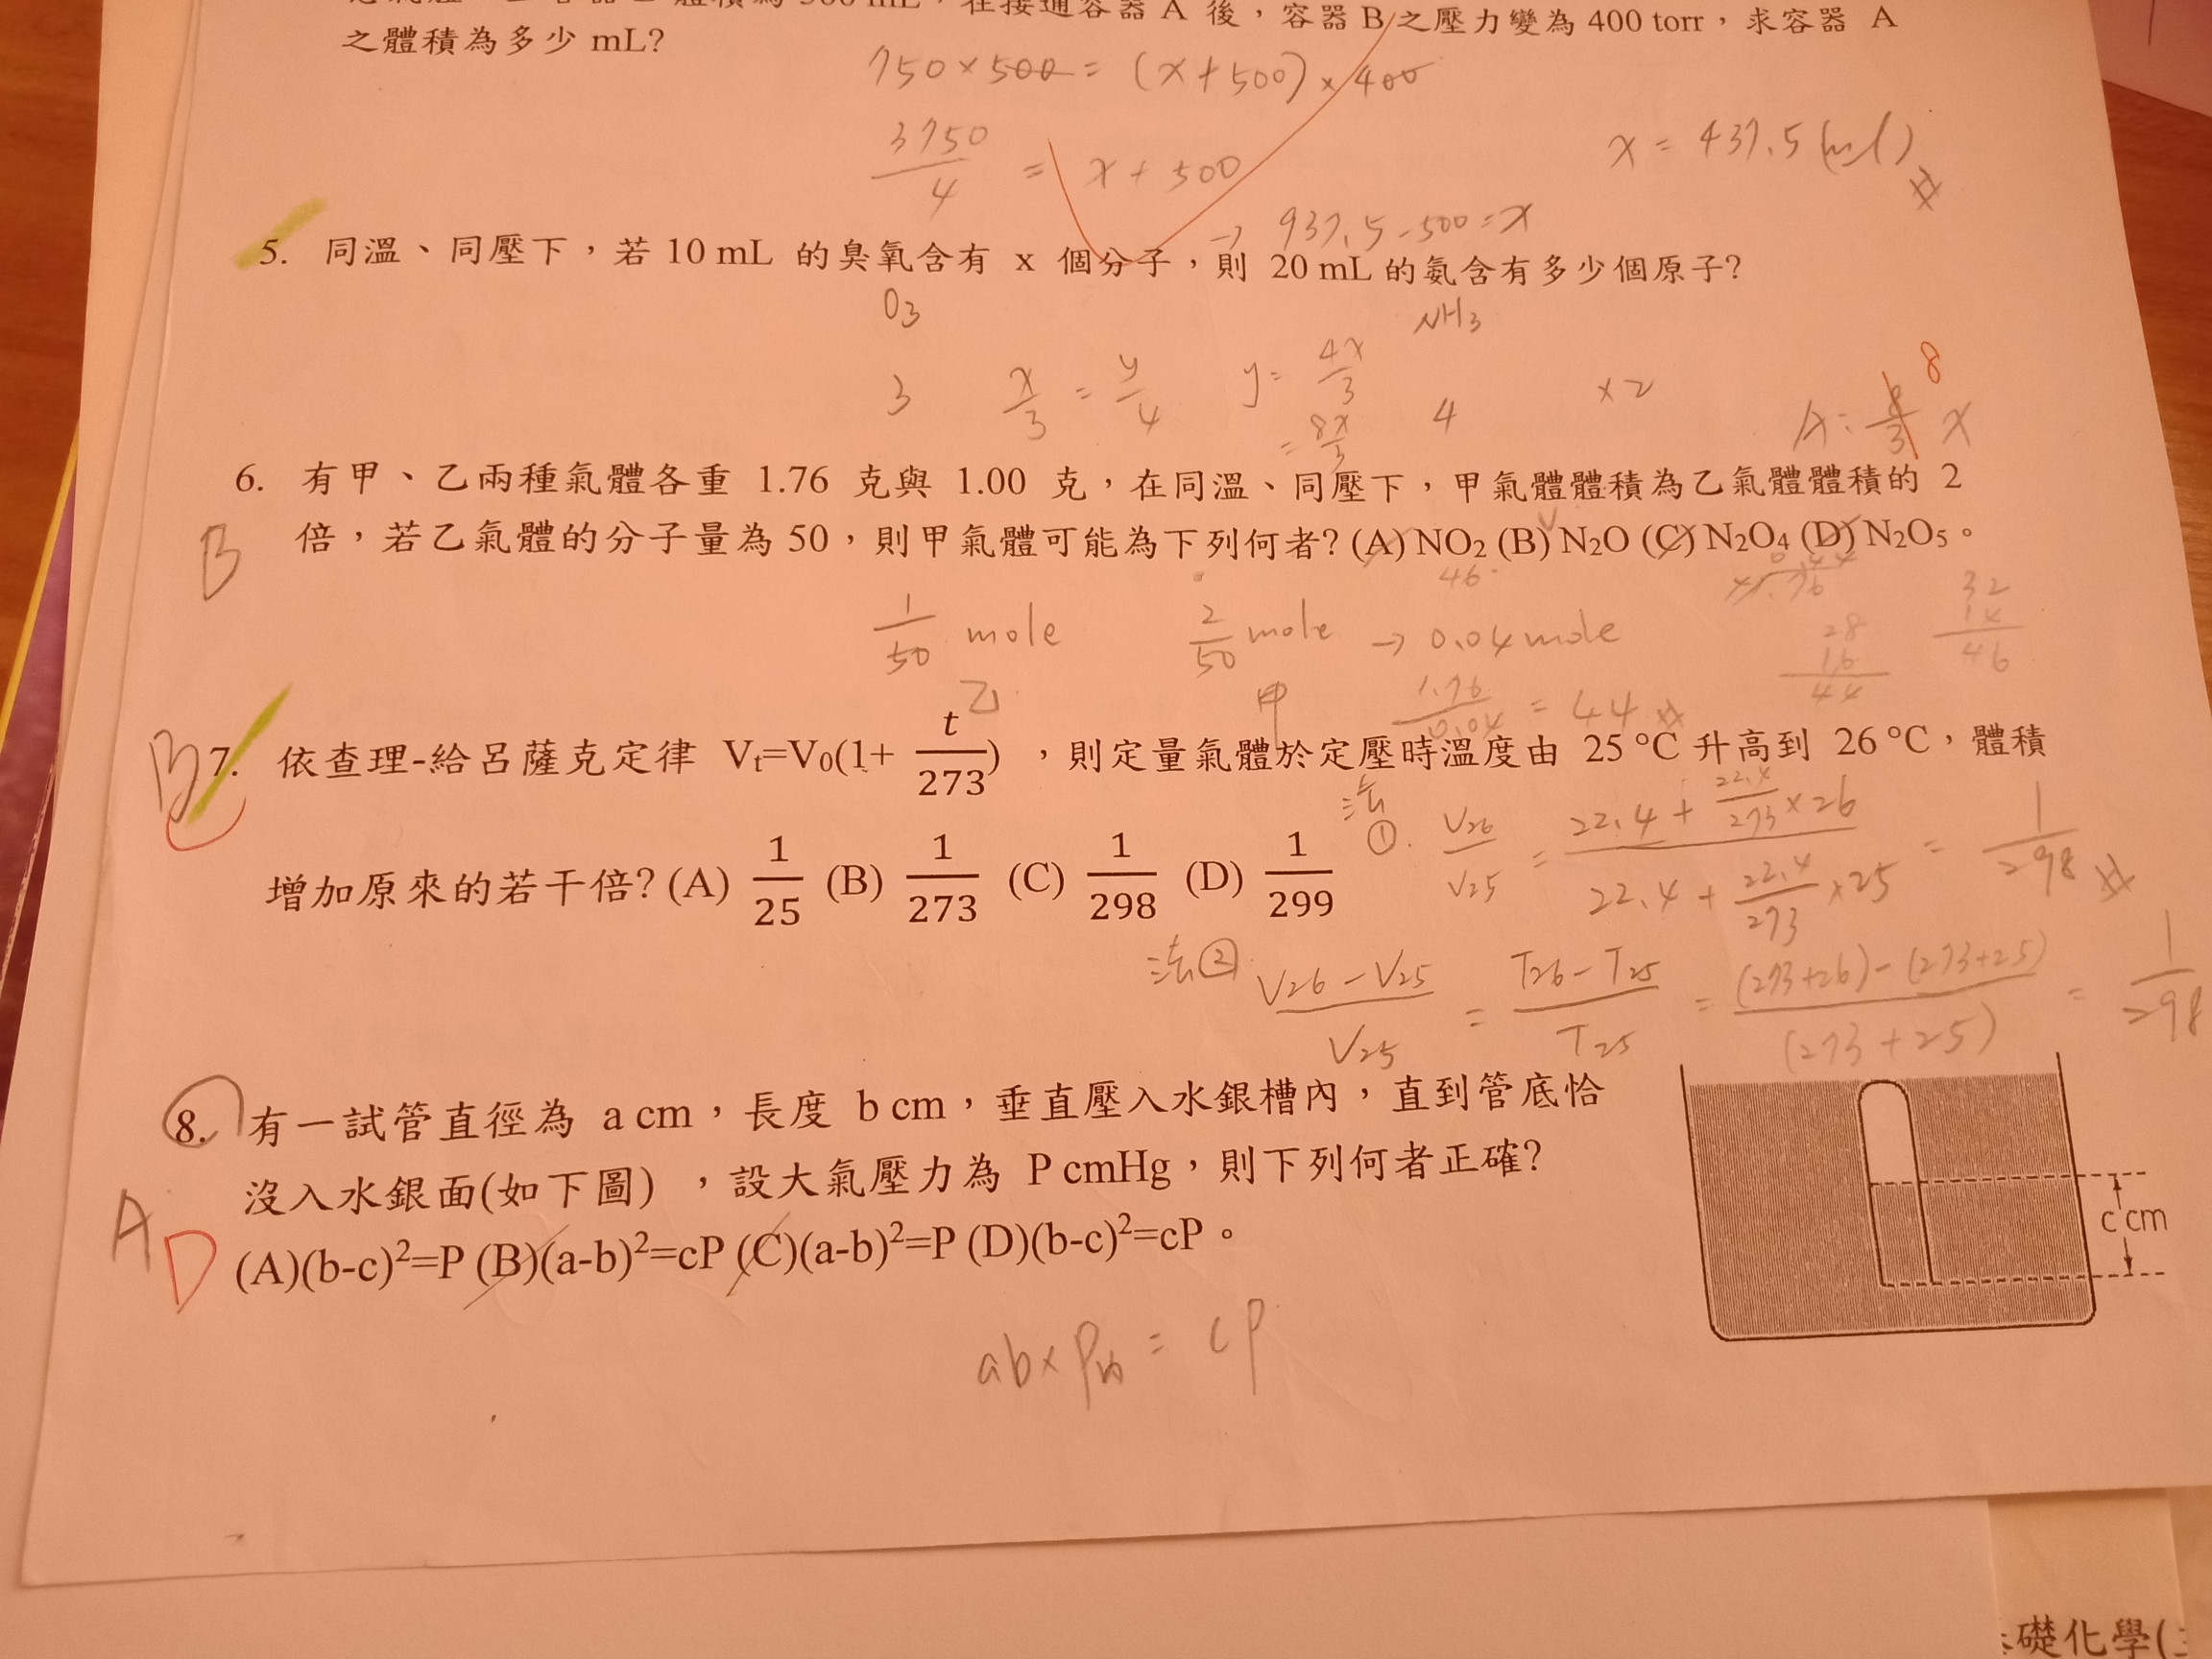 體積為 500 mL，在接通容器 A 後，容器 B 之壓力變為 400 torr，求容器 A
之體積為多少 mL?
750 × 500 = (x + 500) × 400
3750/4 = x + 500
x = 437.5 (ml)
→ 937.5 - 500 = x
5. 同溫、同壓下，若 10 mL 的臭氧含有 x 個分子，則 20 mL 的氨含有多少個原子?
O3 NH3
3 x/3 = y/4 y = 4x/3 4 ×2
= 8x/3
A: 8/3 x 8
6. 有甲、乙兩種氣體各重 1.76 克與 1.00 克，在同溫、同壓下，甲氣體體積為乙氣體體積的 2
倍，若乙氣體的分子量為 50，則甲氣體可能為下列何者? (A) NO2 (B) N2O (C) N2O4 (D) N2O5。
B
46
1/50 mole 2/50 mole → 0.04 mole
乙 甲 1.76/0.04 = 44
28
16
44
32
14
46
B
7. 依查理-給呂薩克定律 Vt=V0(1+ t/273) ，則定量氣體於定壓時溫度由 25 °C 升高到 26 °C，體積
增加原來的若干倍? (A) 1/25 (B) 1/273 (C) 1/298 (D) 1/299
法①. V26/V25 = (22.4 + 22.4/273 × 26)/(22.4 + 22.4/273 × 25) = 1/298
法② (V26 - V25)/V25 = (T26 - T25)/T25 = ((273+26) - (273+25))/(273+25) = 1/298
8. 有一試管直徑為 a cm，長度 b cm，垂直壓入水銀槽內，直到管底恰
沒入水銀面(如下圖) ，設大氣壓力為 P cmHg，則下列何者正確?
A D
(A)(b-c)²=P (B)(a-b)²=cP (C)(a-b)²=P (D)(b-c)²=cP。
c cm
= cP
礎化學(